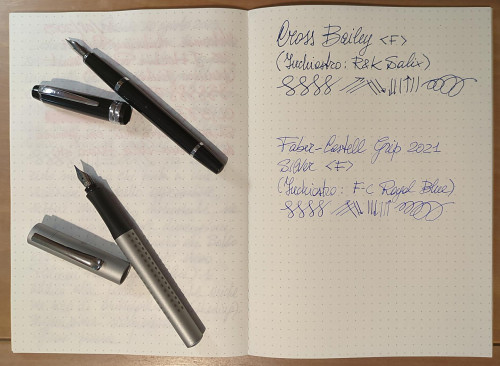 Cross Bailey <F>
(Inchiostro: R&K Salix)
Faber-Castell Grip 2021
Silver <F>
(Inchiostro: F-C Royal Blue)